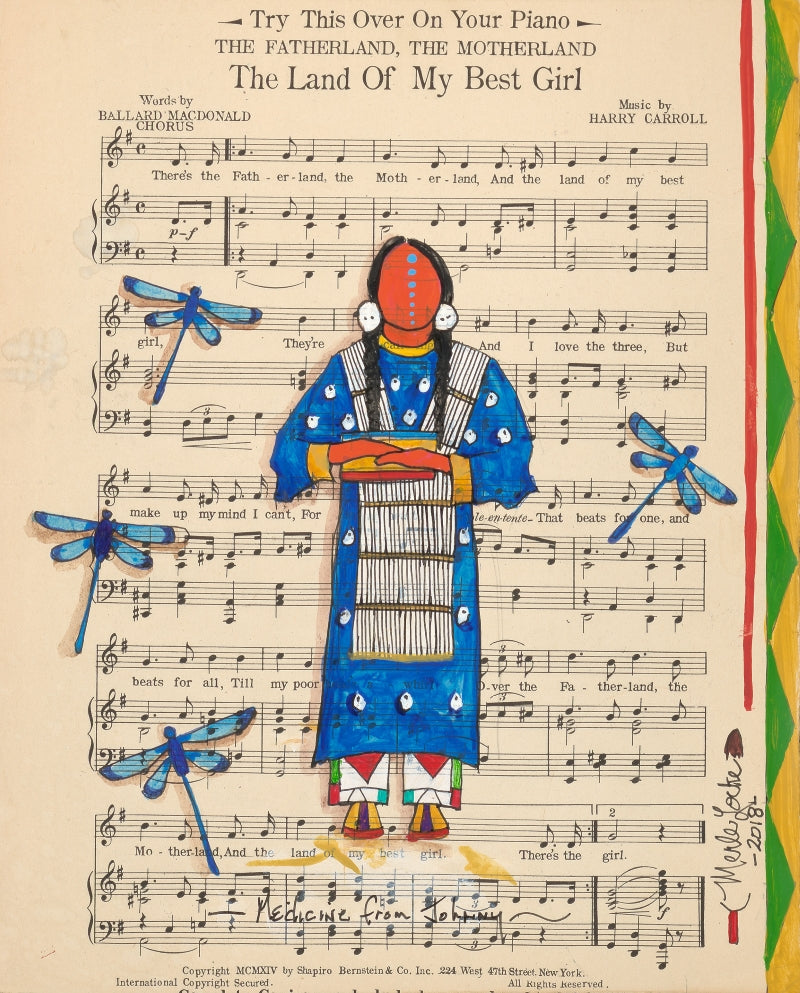 Try This Over On Your Piano
THE FATHERLAND, THE MOTHERLAND
The Land Of My Best Girl
Words by
BALLARD MACDONALD
CHORUS
Music by
HARRY CARROLL
There's the Fath - er - land, the Moth - er - land, And the land of my best
p-f
girl, They're And I love the three, But
3
make up my mind I can't, For ple-en-tente- That beats for one, and
beats for all, Till my poor whirl O-ver the Fa - ther-land, the
3
3
Mo - ther-land, And the land of my best girl. There's the girl.
2
3
Medicine from Johnny
Merle Locke
-2018-
Copyright MCMXIV by Shapiro Bernstein & Co. Inc. 224 West 47th Street. New York.
International Copyright Secured. All Rights Reserved.